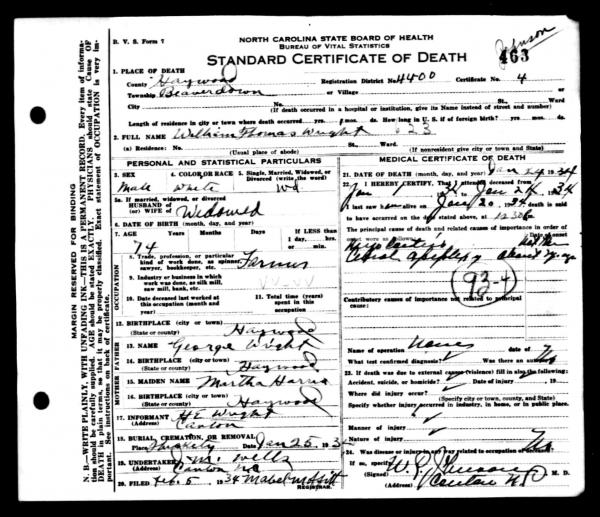 NORTH CAROLINA STATE BOARD OF HEALTH
BUREAU OF VITAL STATISTICS
R. V. S. Form 7
STANDARD CERTIFICATE OF DEATH
Johnson
463
1. PLACE OF DEATH
County Haywood Registration District No. 4400 Certificate No. 4
Township Beaverdown or Village
City No. St. Ward
(If death occurred in a hospital or institution, give its Name instead of street and number)
Length of residence in city or town where death occurred yrs. mos. ds. How long in U. S. if of foreign birth? yrs. mos. ds.
2. FULL NAME William Thomas Wright 623
(a) Residence: No. St. Ward.
(Usual place of abode) (If nonresident give city or town and state)
PERSONAL AND STATISTICAL PARTICULARS
3. SEX 4. COLOR OR RACE 5. Single, Married, Widowed, or Divorced (write the word)
Male White Wd
5a. If married, widowed, or divorced
HUSBAND of
(or) WIFE of Widowed
6. DATE OF BIRTH (month, day, and year)
7. AGE Years Months Days If LESS than
1 day, hrs.
or min.
74
8. Trade, profession, or particular
kind of work done, as spinner,
sawyer, bookkeeper, etc. Farmer
9. Industry or business in which
work was done, as silk mill,
saw mill, bank, etc.
10. Date deceased last worked at
this occupation (month and
year)
11. Total time (years)
spent in this
occupation
OCCUPATION
12. BIRTHPLACE (city or town)
(State or county) Haywood
13. NAME George Wright
14. BIRTHPLACE (city or town)
(State or county) Haywood
15. MAIDEN NAME Martha Harris
16. BIRTHPLACE (city or town)
(State or county) Haywood
MOTHER FATHER
17. INFORMANT H E Wright
(Address) Canton
18. BURIAL, CREMATION, OR REMOVAL
Place Date Jan 25, 1934
19. UNDERTAKER J. M. Wells
(Address) Canton NC
20. FILED Feb. 5, 1934 Mabel Moffitt
REGISTRAR.
MEDICAL CERTIFICATE OF DEATH
21. DATE OF DEATH (month, day, and year) Jan 24 1934
22. I HEREBY CERTIFY, That I attended deceased from
Jan 1, to Jan 24, 1934
I last saw him alive on Jan 20, 1934 death is said
to have occurred on the date stated above, at 12:30 m.
The principal cause of death and related causes of importance in order of
onset were as follows: Date of onset
Cebral Apoplexy
93-4
Contributory causes of importance not related to principal
cause:
Name of operation None Date of
What test confirmed diagnosis? Was there an autopsy? No
23. If death was due to external causes (violence) fill in also the following:
Accident, suicide, or homicide? Date of injury 19
Where did injury occur?
(Specify city or town, county, and State)
Specify whether injury occurred in industry, in home, or in public place.
Manner of injury
Nature of injury
24. Was disease or injury in any way related to occupation of deceased? No
If so, specify
(Signed) M. D.
(Address) Canton N.C.
MARGIN RESERVED FOR BINDING
N. B.—WRITE PLAINLY, WITH UNFADING INK—THIS IS A PERMANENT RECORD. Every item of information should be carefully supplied. AGE should be stated EXACTLY. PHYSICIANS should state CAUSE OF DEATH in plain terms, so that it may be properly classified. Exact statement of OCCUPATION is very important. See instructions on back of certificate.